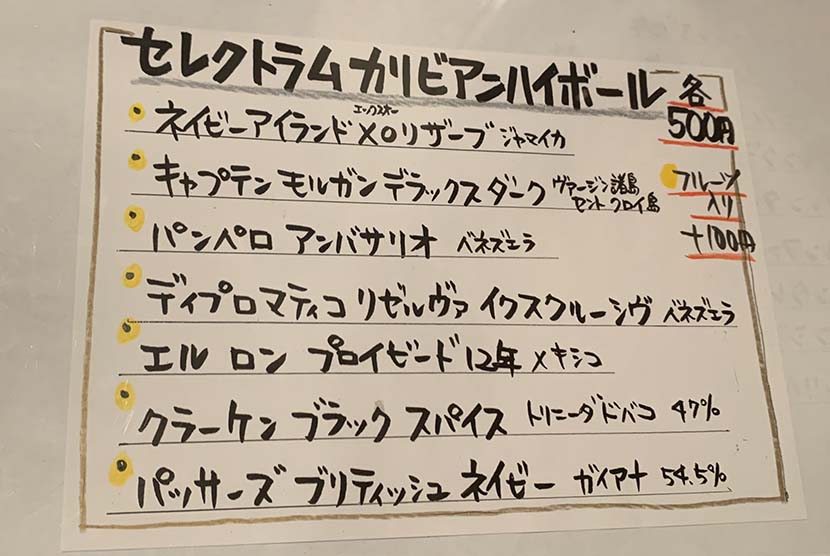 セレクトラムカリビアンハイボール 各
500円
エックスオー
ネイビーアイランド XO リザーブ ジャマイカ
フルーツ
入り
+100円
キャプテン モルガン デラックス ダーク ヴァージン諸島
セント クロイ島
パンペロ アンバサリオ ベネズエラ
ディプロマティコ リゼルヴァ イクスクルーシヴ ベネズエラ
エル ロン プロイビード 12年 メキシコ
クラーケン ブラック スパイス トリニーダドバコ 47%
パッサーズ ブリティッシュ ネイビー ガイアナ 54.5%